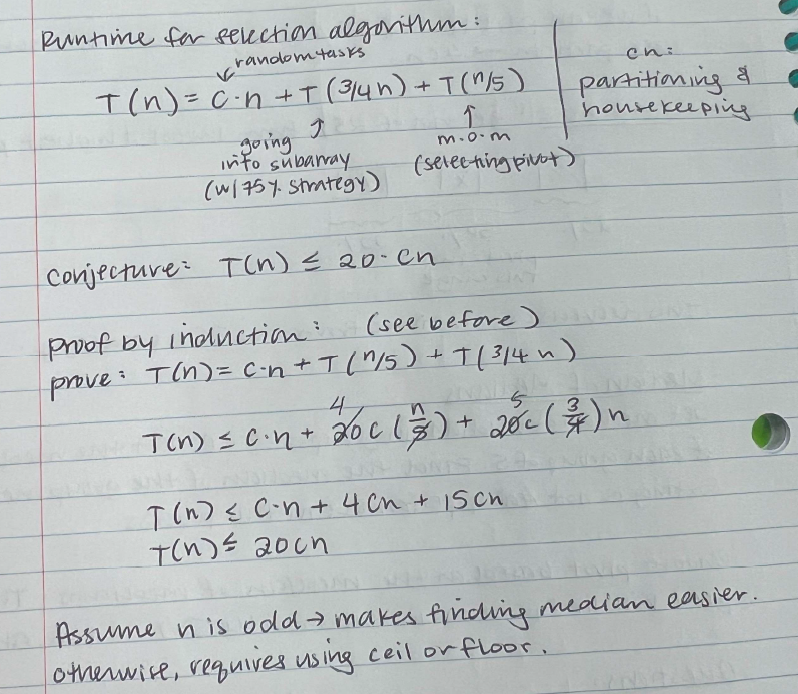 Runtime for selection algorithm:
random tasks
T(n) = C·n + T(3/4n) + T(n/5)
going into subarray (w/ 75% strategy)
m.o.m (selecting pivot)
cn:
partitioning &
housekeeping
conjecture: T(n) ≤ 20·cn
proof by induction: (see before)
prove: T(n) = C·n + T(n/5) + T(3/4 n)
T(n) ≤ C·n + 4 20c(n/5) + 5 20c(3/4)n
T(n) ≤ C·n + 4cn + 15cn
T(n) ≤ 20cn
Assume n is odd → makes finding median easier.
otherwise, requires using ceil or floor.